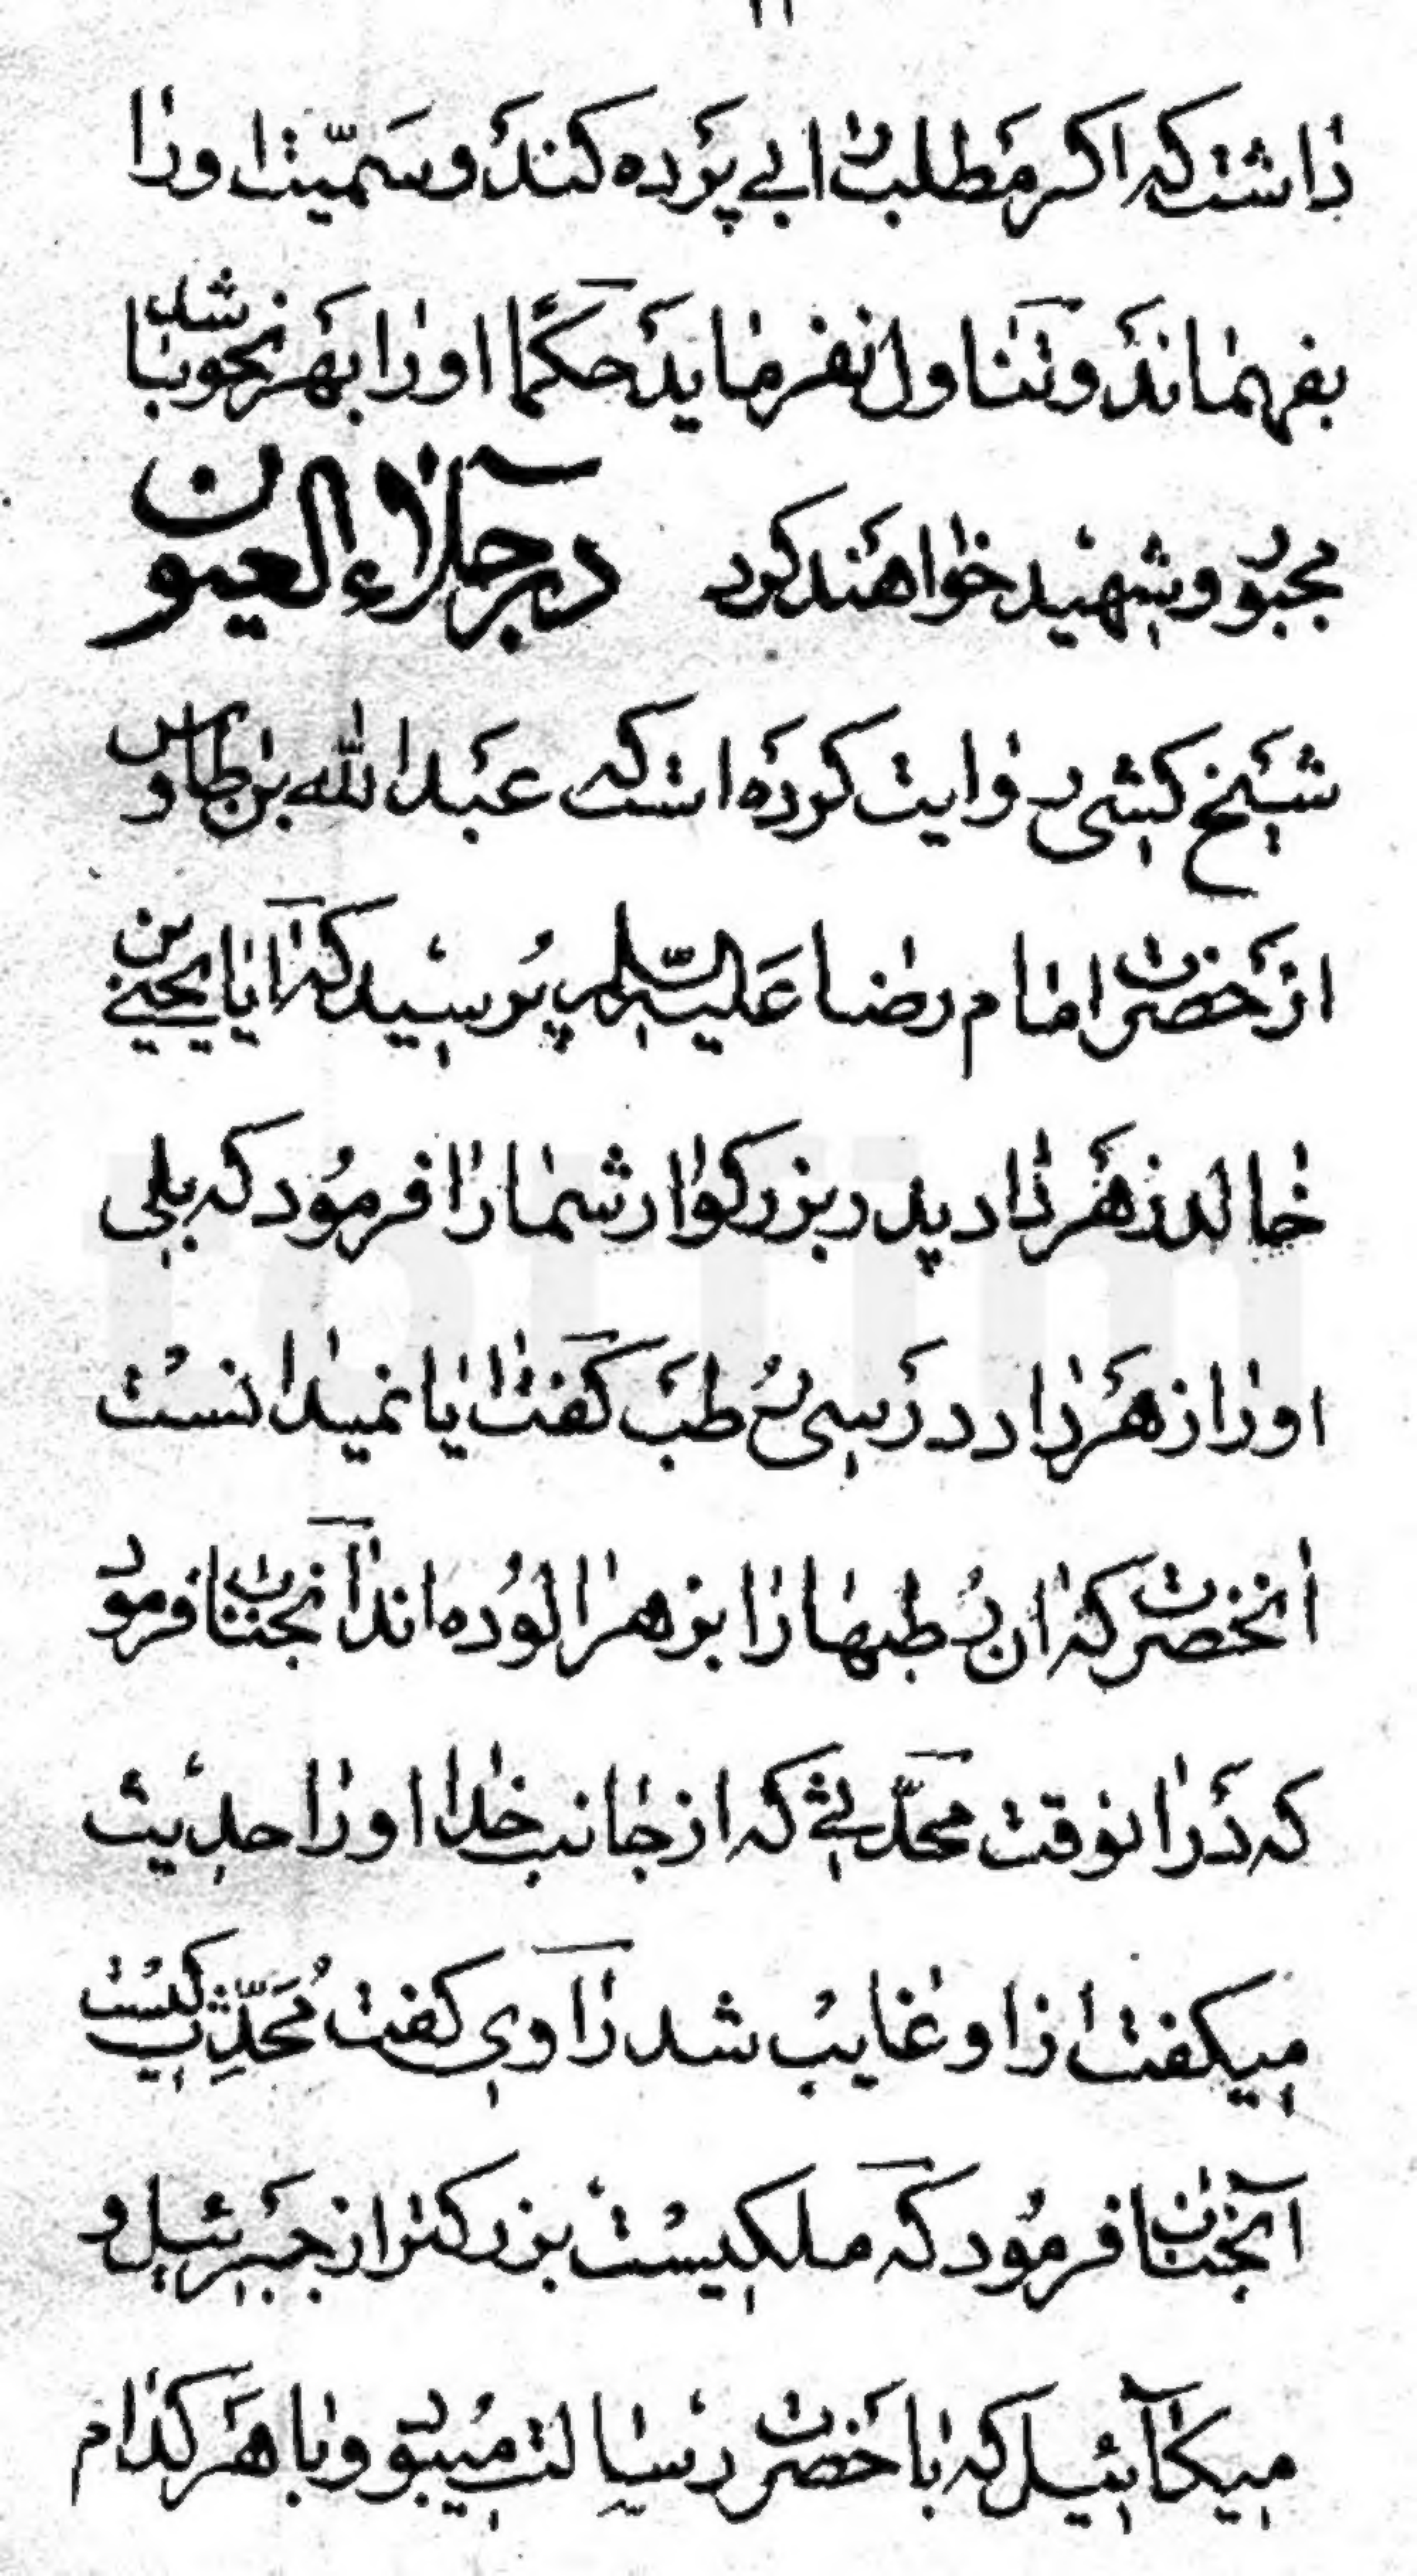 داشت که اگر مطلب را بی پرده کند و سمّیت او را
بفهماند و تناول نفرماید حکمًا او را بهر نحو باشد
مجبور و شهید خواهند کرد در جلاء العیون
شیخ کشی روایت کرده است که عبدالله بن طاوس
از حضرت امام رضا علیه السّلم پرسید که آیا یحیی بن
خالد زهر داد پدر بزرگوار شما را فرمود که بلی
او را زهر داد در سی رُطب گفت ایا نمیدانست
انحضرت که ان رُطبها را بزهر الوُده اند آنجناب فرمود
که در انوقت محدّثی که از جانب خدا او را حدیث
میکفت از او غایب شد راوی کفت مُحَدِّث کیست
آنجناب فرمُود که ملکیست بزرکتر از جبرئیل و
میکآئیل که با حضرت رسالت میبود و با هر کدام